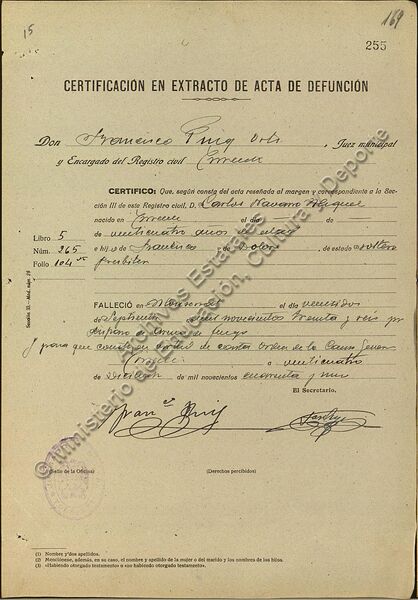 15
169
255
CERTIFICACIÓN EN EXTRACTO DE ACTA DE DEFUNCIÓN
Don Francisco Puig Orts, Juez municipal
y Encargado del Registro civil
CERTIFICO: Que, según consta del acta reseñada al margen y correspondiente a la Sec-
ción III de este Registro civil, D. Carlos Navarro Miquel
nacido en el día de
Libro 5 de veinticuatro años de edad
Núm. 265 e hijo de Francisco y de Dolores, de estado soltero
Folio 104 vto presbítero
FALLECIÓ en el día veintidos
de Septiembre de mil novecientos treinta y seis por
disparo de arma de fuego
Y para que conste en virtud de carta orden de la Causa General
a veinticuatro
de de mil novecientos cuarenta y uno
El Secretario,
Franco Puig
(Sello de la Oficina)
(Derechos percibidos)
(1) Nombre y dos apellidos.
(2) Menciónese, además, en su caso, el nombre y apellido de la mujer o del marido y los nombres de los hijos.
(3) «Habiendo otorgado testamento» o «no habiendo otorgado testamento».
© Ministerio de Educación, Cultura y Deporte
Archivos Estatales